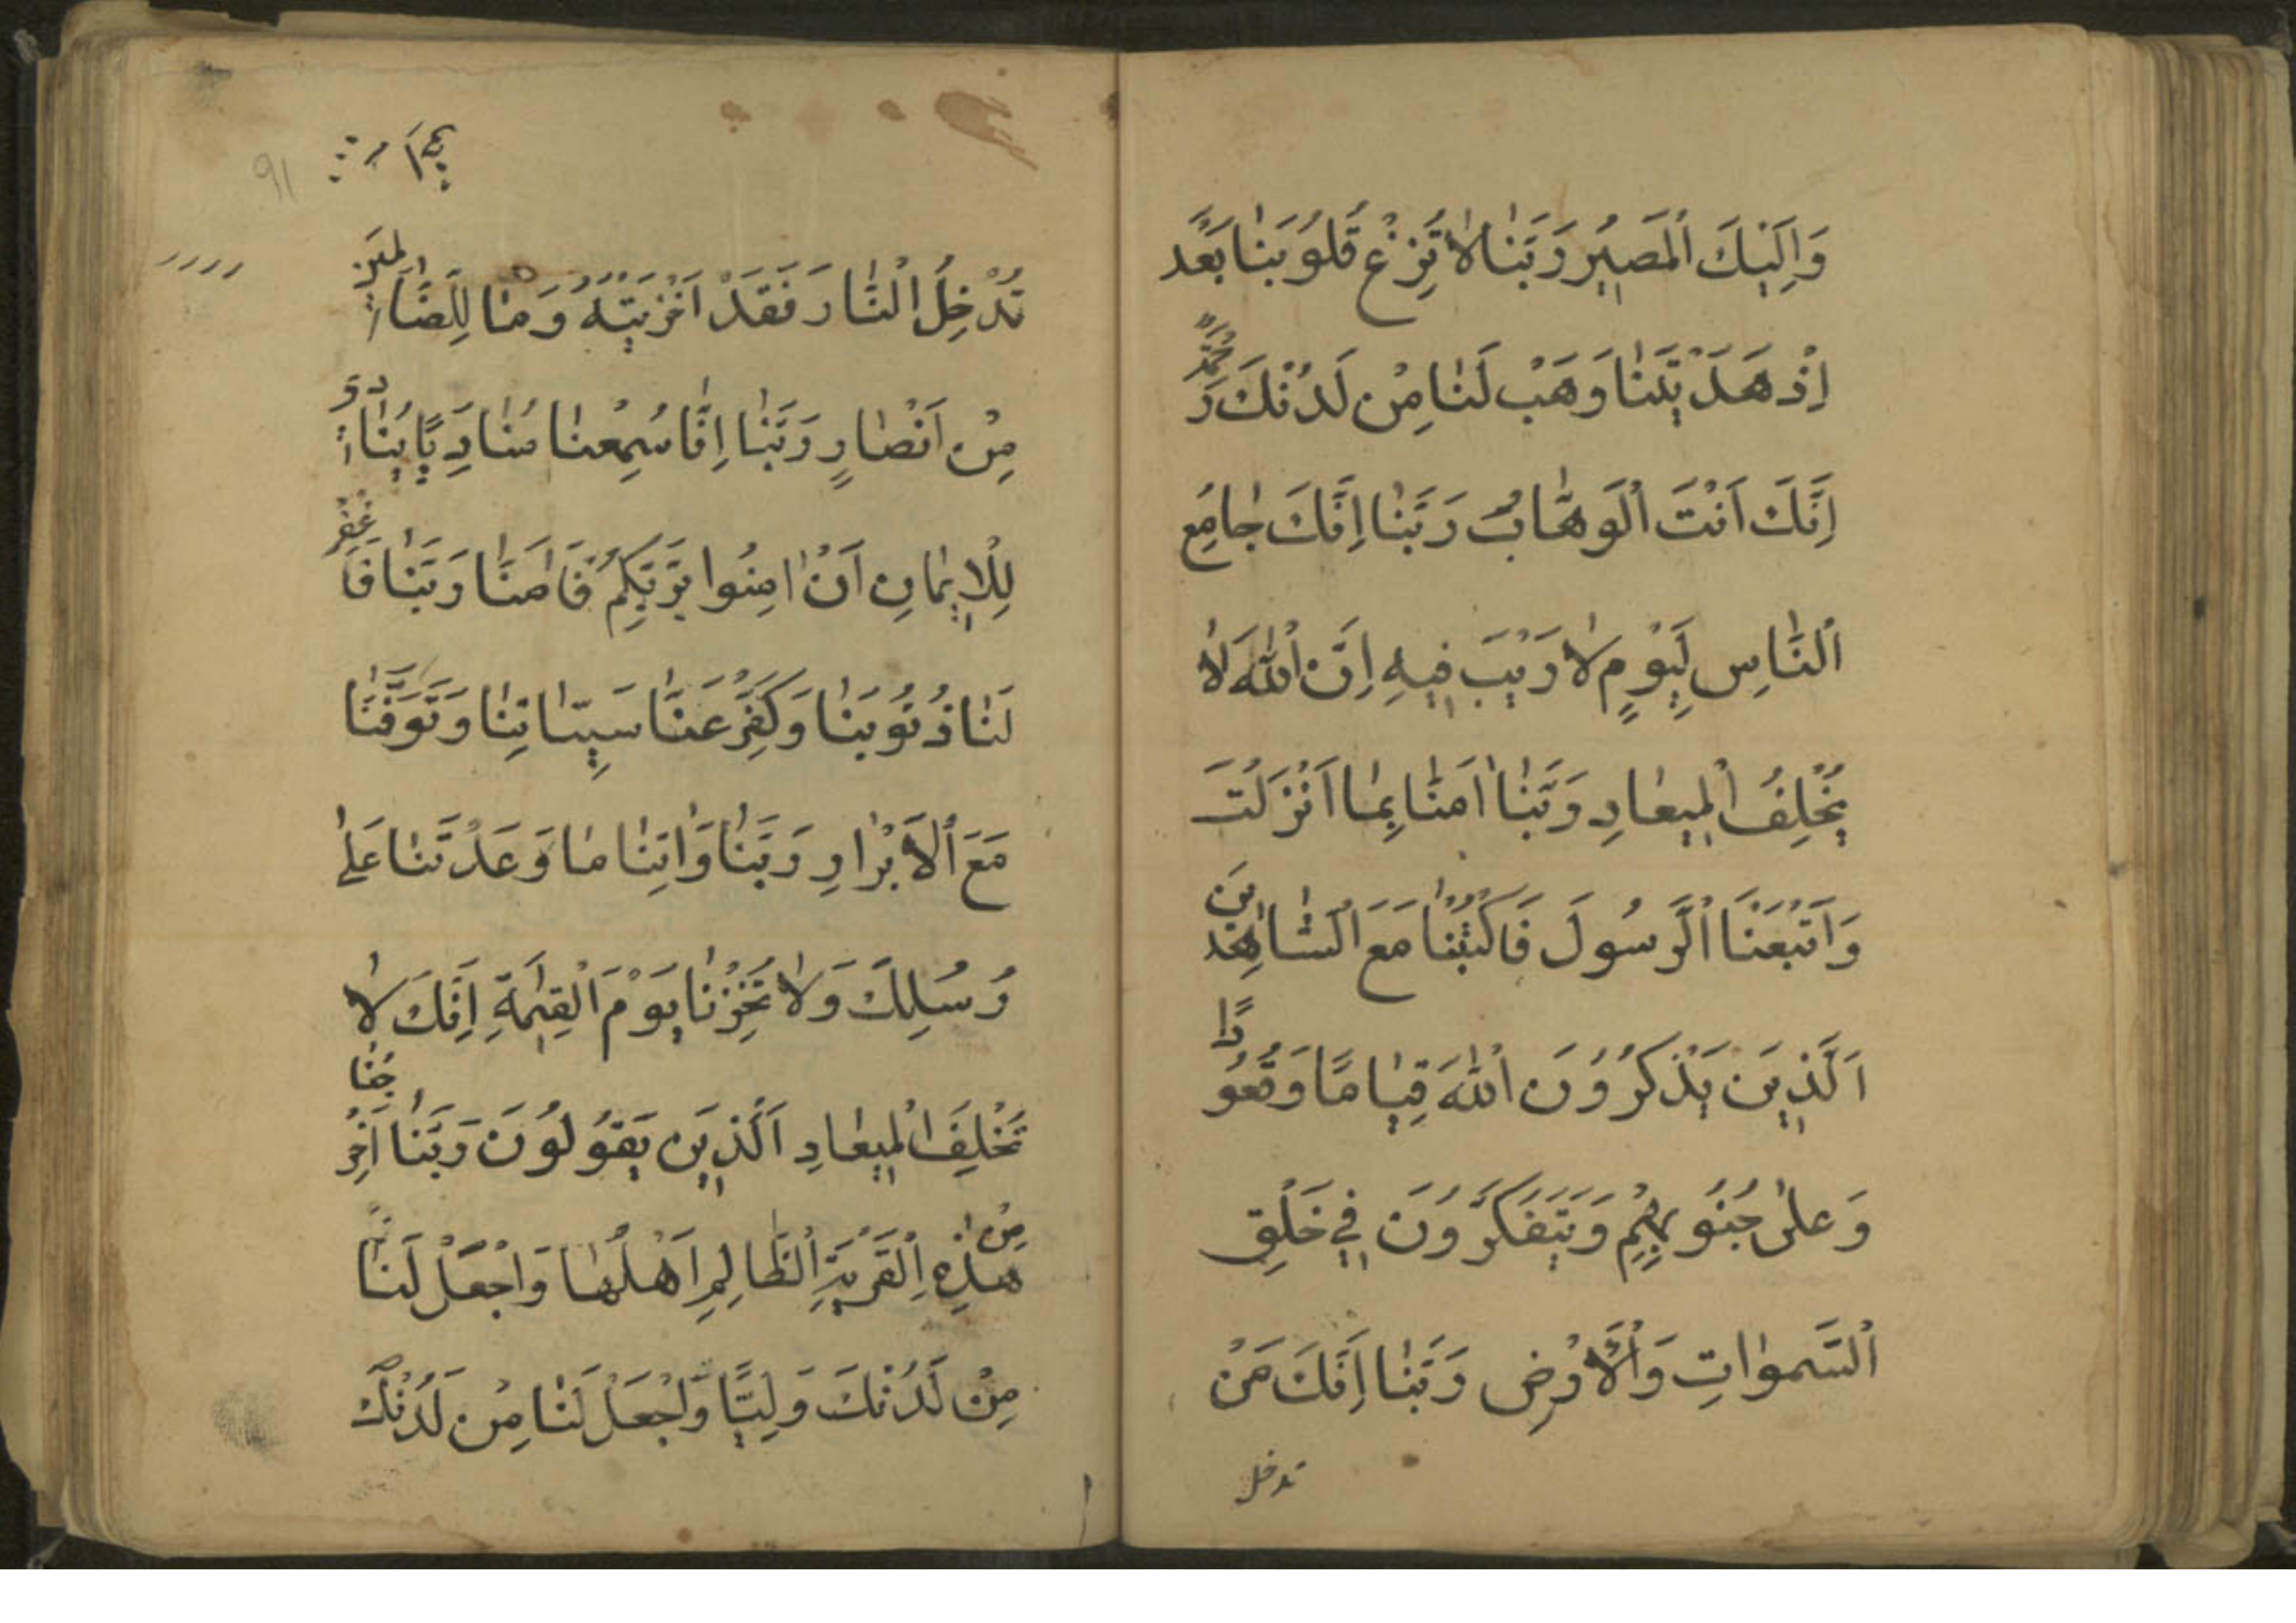 وَاِلَيْكَ ٱلْمَصِيرُ رَبَّنٰا لاٰ تُزِغْ قُلُوبَنٰا بَعْدَ
اِذْ هَدَيْتَنٰا وَهَبْ لَنٰا مِنْ لَدُنْكَ رَحْمَةً
اِنَّكَ اَنْتَ ٱلْوَهّٰابُ رَبَّنٰا اِنَّكَ جٰامِعُ
ٱلنّٰاسِ لِيَوْمٍ لاٰ رَيْبَ فِيهِ اِنَّ ٱللّٰهَ لاٰ
يُخْلِفُ ٱلْمِيعٰادِ رَبَّنٰا اٰمَنّٰا بِمٰا اَنْزَلْتَ
وَاتَّبَعْنَا ٱلرَّسُولَ فَاكْتُبْنٰا مَعَ ٱلشّٰاهِدِينَ
اَلَّذِينَ يَذْكُرُونَ ٱللّٰهَ قِيٰامًا وَقُعُودًا
وَعَلىٰ جُنُوبِهِمْ وَيَتَفَكَّرُونَ فِي خَلْقِ
ٱلسَّمٰوٰاتِ وَٱلْاَرْضِ رَبَّنٰا اِنَّكَ مَنْ
تدخل
91
تُدْخِلِ ٱلنّٰارَ فَقَدْ اَخْزَيْتَهُ وَمٰا لِلظّٰالِمِينَ
مِنْ اَنْصٰارٍ رَبَّنٰا اِنَّنٰا سَمِعْنٰا مُنٰادِيًا يُنٰادِي
لِلْاِيمٰانِ اَنْ اٰمِنُوا بِرَبِّكُمْ فَاٰمَنّٰا رَبَّنٰا فَاغْفِرْ
لَنٰا ذُنُوبَنٰا وَكَفِّرْ عَنّٰا سَيِّئٰاتِنٰا وَتَوَفَّنٰا
مَعَ ٱلْاَبْرٰارِ رَبَّنٰا وَاٰتِنٰا مٰا وَعَدْتَنٰا عَلىٰ
رُسُلِكَ وَلاٰ تُخْزِنٰا يَوْمَ ٱلْقِيٰمَةِ اِنَّكَ لاٰ
تُخْلِفُ ٱلْمِيعٰادِ اَلَّذِينَ يَقُولُونَ رَبَّنٰا اَخْرِجْنٰا
مِنْ هٰذِهِ ٱلْقَرْيَةِ ٱلظّٰالِمِ اَهْلُهٰا وَاجْعَلْ لَنٰا
مِنْ لَدُنْكَ وَلِيًّا وَاجْعَلْ لَنٰا مِنْ لَدُنْكَ